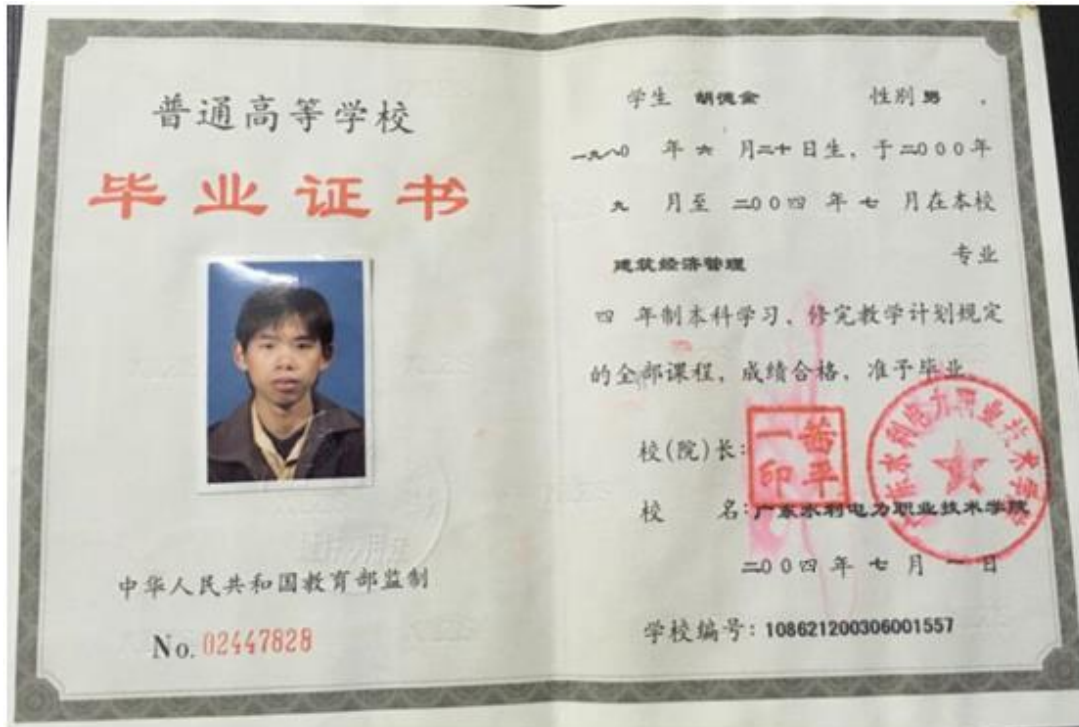 普通高等学校
毕业证书
中华人民共和国教育部监制
No. 02447828
学生 胡德金 性别 男 .
一九八0 年 六 月二十日生, 于二000年
九 月至 二00四 年 七 月在本校
建筑经济管理 专业
四 年制本科学习, 修完教学计划规定
的全部课程, 成绩合格, 准予毕业。
校(院)长:
一茜
印平
校 名: 广东水利电力职业技术学院
广东水利电力职业技术学院
二00四 年 七 月 一 日
学校编号: 108621200306001557